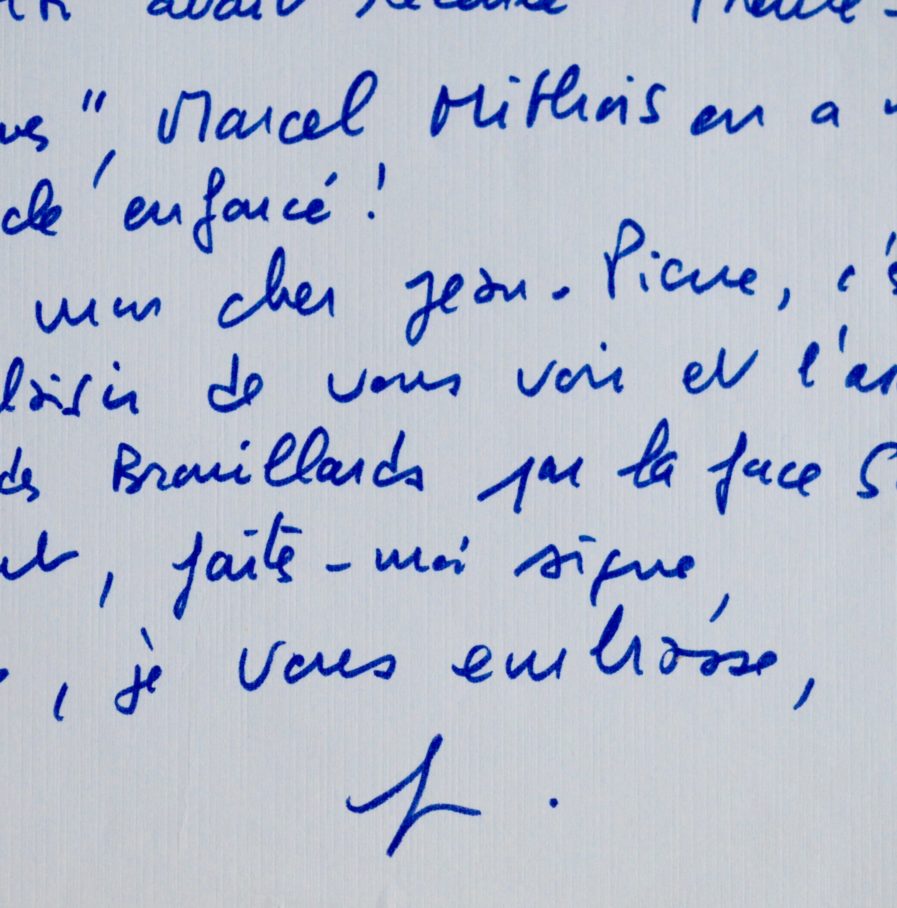 avait
", Marcel Mithois en a "
de enfoncé !
mon cher Jean-Pierre, c'
plaisir de vous voir et l'
des Brouillards par la face S
, faites-moi signe,
, je vous embrasse,